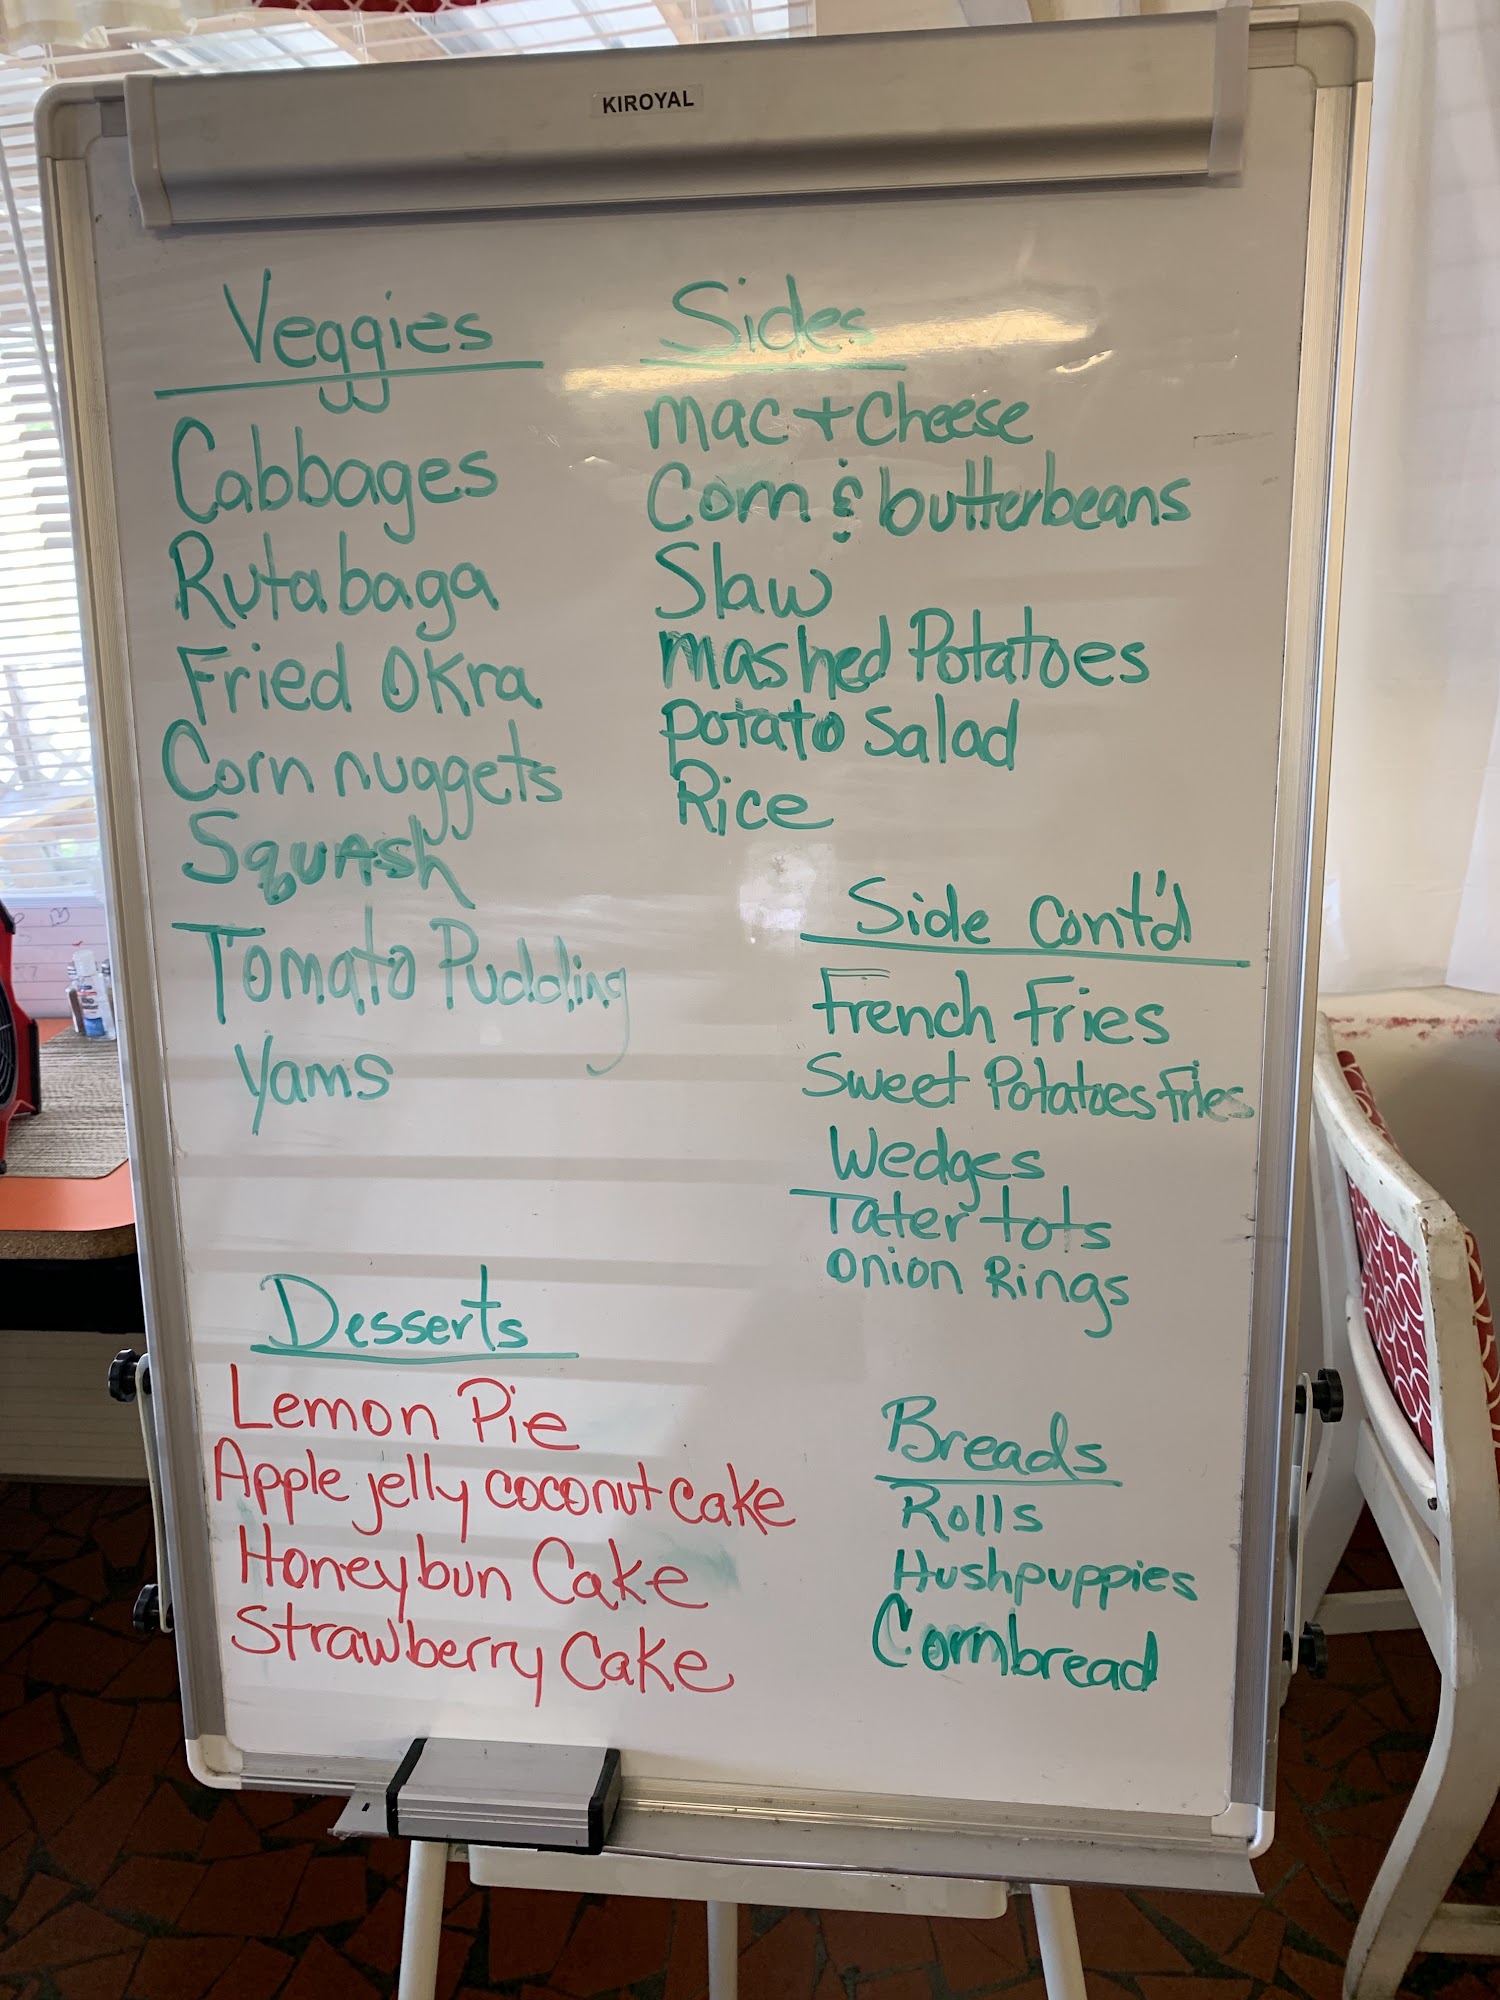 KIROYAL
Veggies
Cabbages
Rutabaga
Fried Okra
Corn nuggets
Squash
Tomato Pudding
Yams
Sides
mac + Cheese
Corn & butterbeans
Slaw
mashed Potatoes
potato Salad
Rice
Side Cont'd
French Fries
Sweet Potatoes Fries
Wedges
Tater tots
onion Rings
Desserts
Lemon Pie
Apple jelly coconut cake
Honeybun Cake
Strawberry Cake
Breads
Rolls
Hushpuppies
Cornbread